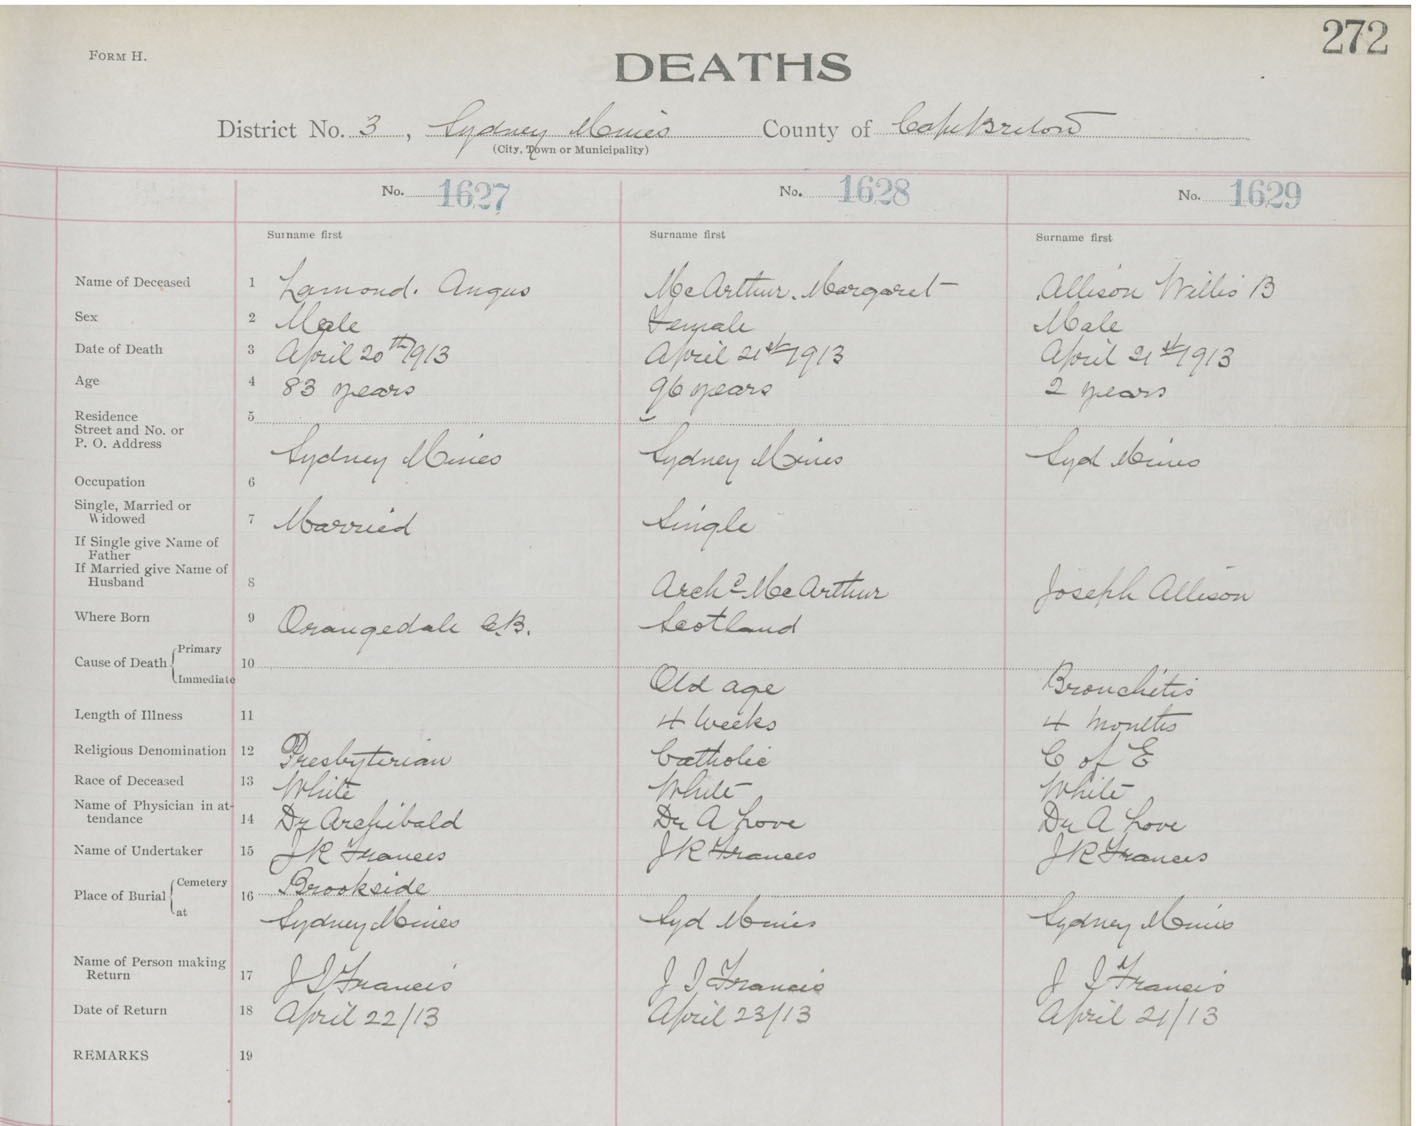 272
FORM H.
DEATHS
District No. 3, Sydney Mines County of Cape Breton
(City, Town or Municipality)
No. 1627 No. 1628 No. 1629
Surname first Surname first Surname first
Name of Deceased 1 Lamond. Angus McArthur. Margaret Allison Willis B
Sex 2 Male Female Male
Date of Death 3 April 20th 1913 April 21st 1913 April 21st 1913
Age 4 83 years 96 years 2 years
Residence 5
Street and No. or
P. O. Address Sydney Mines Sydney Mines Syd Mines
Occupation 6
Single, Married or
Widowed 7 Married Single
If Single give Name of
Father
If Married give Name of
Husband 8 Archd McArthur Joseph Allison
Where Born 9 Orangedale C.B. Scotland
Primary
Cause of Death 10
Immediate Old age Bronchitis
Length of Illness 11 4 Weeks 4 Months
Religious Denomination 12 Presbyterian Catholic C of E
Race of Deceased 13 White White White
Name of Physician in at-
tendance 14 Dr Archibald Dr A Love Dr A Love
Name of Undertaker 15 J R Francis J R Francis J R Francis
Cemetery Brookside
Place of Burial 16
at Sydney Mines Syd Mines Sydney Mines
Name of Person making
Return 17 J I Francis J I Francis J I Francis
Date of Return 18 April 22/13 April 23/13 April 21/13
REMARKS 19